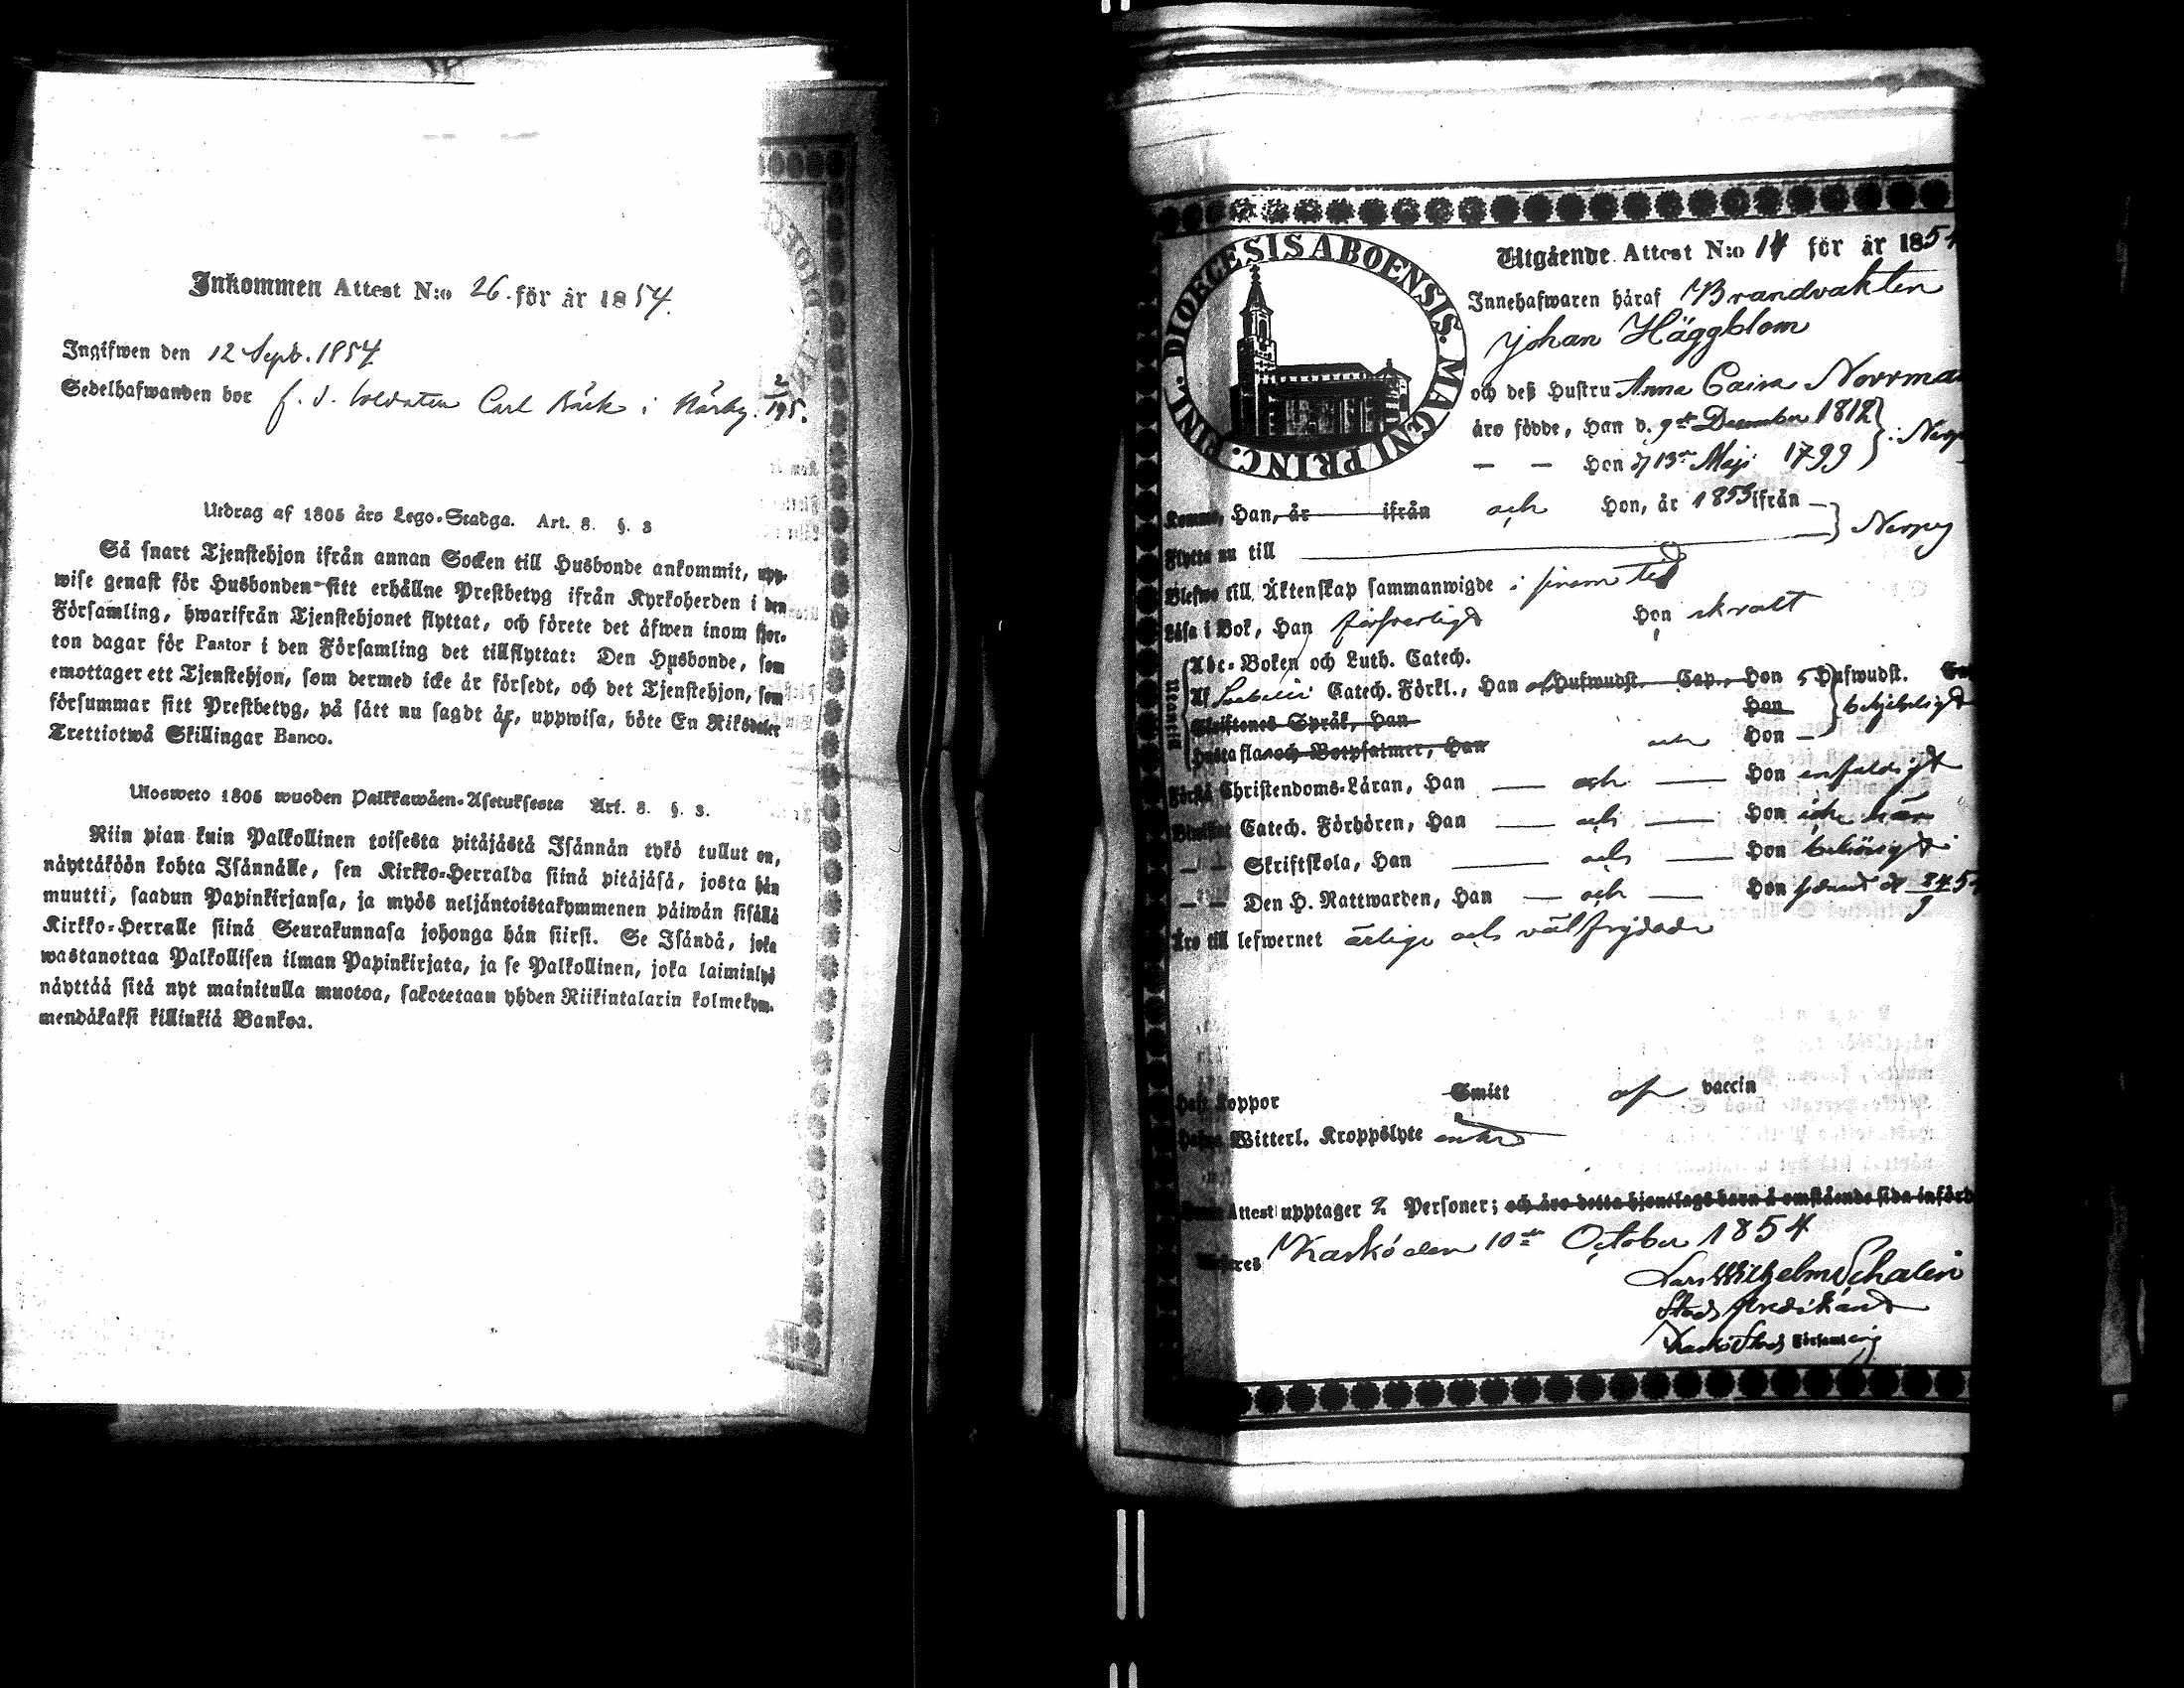 Inkommen Attest N:o 26. för år 1854.
Ingifwen den 12 Sept. 1854
Sedelhafwanden bor f. d. Soldaten Carl Bäck i Närby. 2/195.
Utdrag af 1805 års Lego-Stadga. Art. 8. §. 3
Så snart Tjenstehjon ifrån annan Socken till Husbonde ankommit, upp-
wise genast för Husbonden sitt erhållne Prestbetyg ifrån Kyrkoherden i den
Församling, hwarifrån Tjenstehjonet flyttat, och förete det åfwen inom fjor-
ton dagar för Pastor i den Församling det tillflyttat: Den Husbonde, som
emottager ett Tjenstehjon, som dermed icke år försedt, och det Tjenstehjon, som
försummar sitt Prestbetyg, på sått nu sagdt år, uppwisa, böte En Riksdaler
Trettiotwå Skillingar Banco.
Ulosweto 1805 wuoden Palkkawåen-Asetuksesta Art. 8. §. 3.
Niin pian kuin Palkollinen toisesta pitåjåstå Isånnån tykö tullut on,
nåyttåköön kohta Isånnålle, sen Kirkko-Herralda siinå pitåjåså, josta hån
muutti, saadun Papinkirjansa, ja myös neljåntoistakymmenen påiwån sisållå
Kirkko-Herralle siinå Seurakunnasa johonga hån siirsi. Se Isåndå, joka
wastanottaa Palkollisen ilman Papinkirjata, ja se Palkollinen, joka laiminlyö
nåyttåå sitå nyt mainitulla muotoa, sakotetaan yhden Riikintalarin kolmekym-
mendåkaksi killinkiå Bankoa.
DIOECESIS ABOENSIS. MAGNI PRINC. FINL.
Utgående Attest N:o 14 för år 1854
Innehafwaren håraf Brandvakten
Johan Häggblom
och deß Hustru Anna Caisa Norrman
åro födde, Han d. 9de December 1812 } i Nerp
— — Hon d 13de Maji 1799
Komne, Han, år ifrån och Hon, år 1853 ifrån — } Nerpes
Flytta nu till
Blefwo till Åktenskap sammanwigde i sinom tid
Låsa i Bok, Han försvarligt Hon skralt
Utantill
Abc-Boken och Luth. Catech.
Af Svebelii Catech. Förkl., Han och Hufwudst. Cap., Hon 5 Hufwudst.
Skriftenes Språk, Han Hon } behjelpligt
Hustaflan och Botpsalmer, Han och Hon —
Förstå Christendoms-Låran, Han — och — Hon enfaldigt
Bewistat Catech. Förhören, Han — och — Hon icke här
— — Skriftskola, Han — och — Hon behörigt
— — Den H. Nattwarden, Han — och — Hon senast d
Åro till lefwernet ärlige och välfrejdade
Haft Koppor Smitt af vaccin
Hafwa Witterl. Kroppslyte
Denna Attest upptager 2 Personer; och åro detta hjonelags barn å omstående sida införd
Meddeles Kaskö den 10de October 1854
Lars Wilhelm Schalin
Stads Predikant
Kaskö Stads Församling